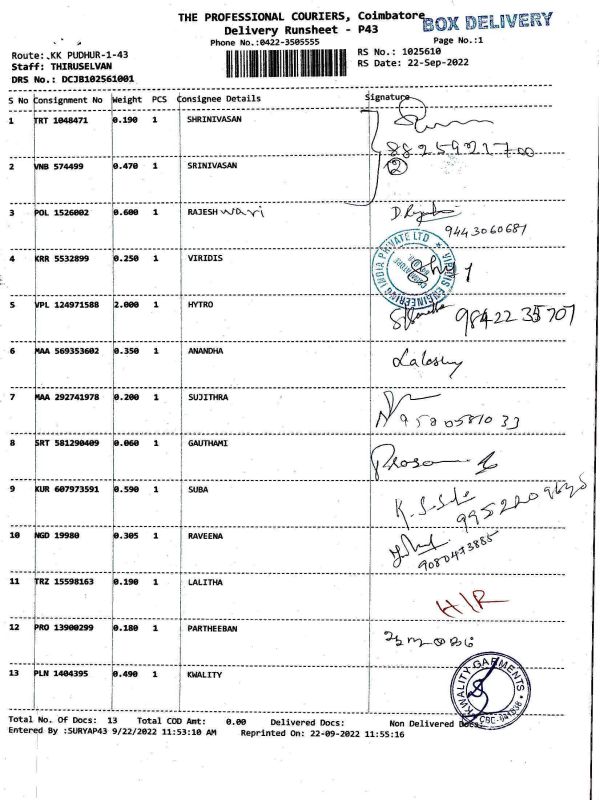 THE PROFESSIONAL COURIERS, Coimbatore
BOX DELIVERY
Delivery Runsheet - P43
Phone No.:0422-3505555
Page No.:1
Route: KK PUDHUR-1-43
RS No.: 1025610
Staff: THIRUSELVAN
RS Date: 22-Sep-2022
DRS No.: DCJB102561001
S No Consignment No Weight PCS Consignee Details Signature
1 TRT 1048471 0.190 1 SHRINIVASAN
8825921700
2 VNB 574499 0.470 1 SRINIVASAN 2
3 POL 1526002 0.600 1 RAJESHwari
9443060687
4 KRR 5532899 0.250 1 VIRIDIS
VIRIDIS ENGINEERING INDIA PRIVATE LTD
5 VPL 124971588 2.000 1 HYTRO
9842235707
6 MAA 569353602 0.350 1 ANANDHA
7 MAA 292741978 0.200 1 SUJITHRA
9580581033
8 SRT 581290409 0.060 1 GAUTHAMI
9 KUR 607973591 0.590 1 SUBA
10 NGD 19980 0.305 1 RAVEENA
9080473885
11 TRZ 15598163 0.190 1 LALITHA
H/R
12 PRO 13900299 0.180 1 PARTHEEBAN
13 PLN 1404395 0.490 1 KWALITY
KWALITY GARMENTS
Total No. Of Docs: 13 Total COD Amt: 0.00 Delivered Docs: Non Delivered Docs:
Entered By :SURYAP43 9/22/2022 11:53:10 AM Reprinted On: 22-09-2022 11:55:16